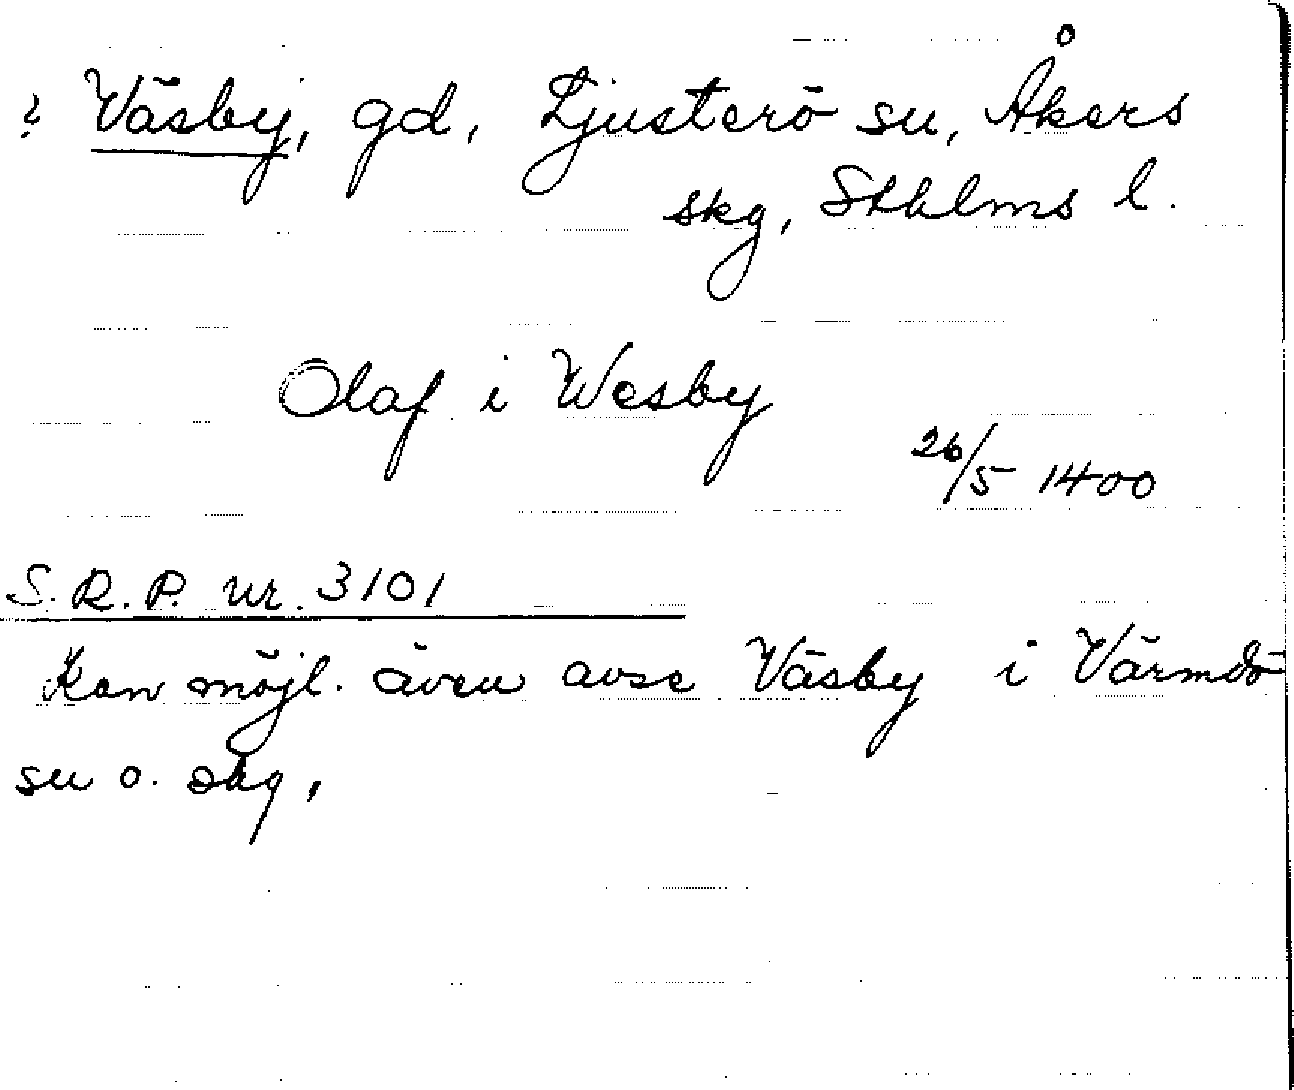 ? Väsby, gd, Ljusterö sn, Åkers
skg, Sthlms l.
Olaf i Wesby
26/5 1400
S.R.P. nr. 3101
Kan möjl. även avse Väsby i Värmdö
sn o. skg,